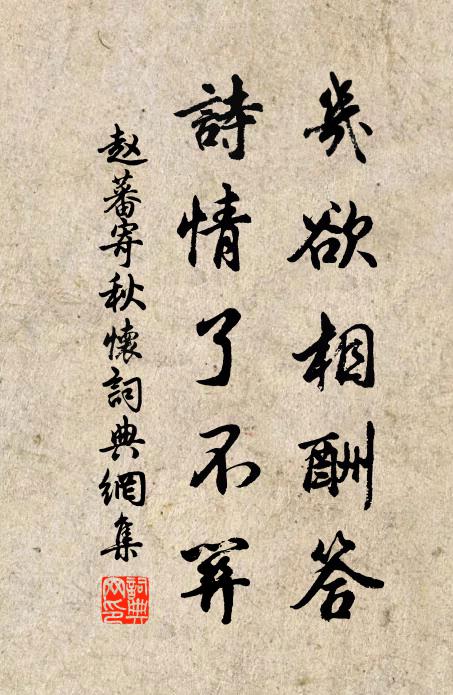 幾欲相酬答
詩情了不
赵蕃寄秋懷詞典網集
詞典
网印